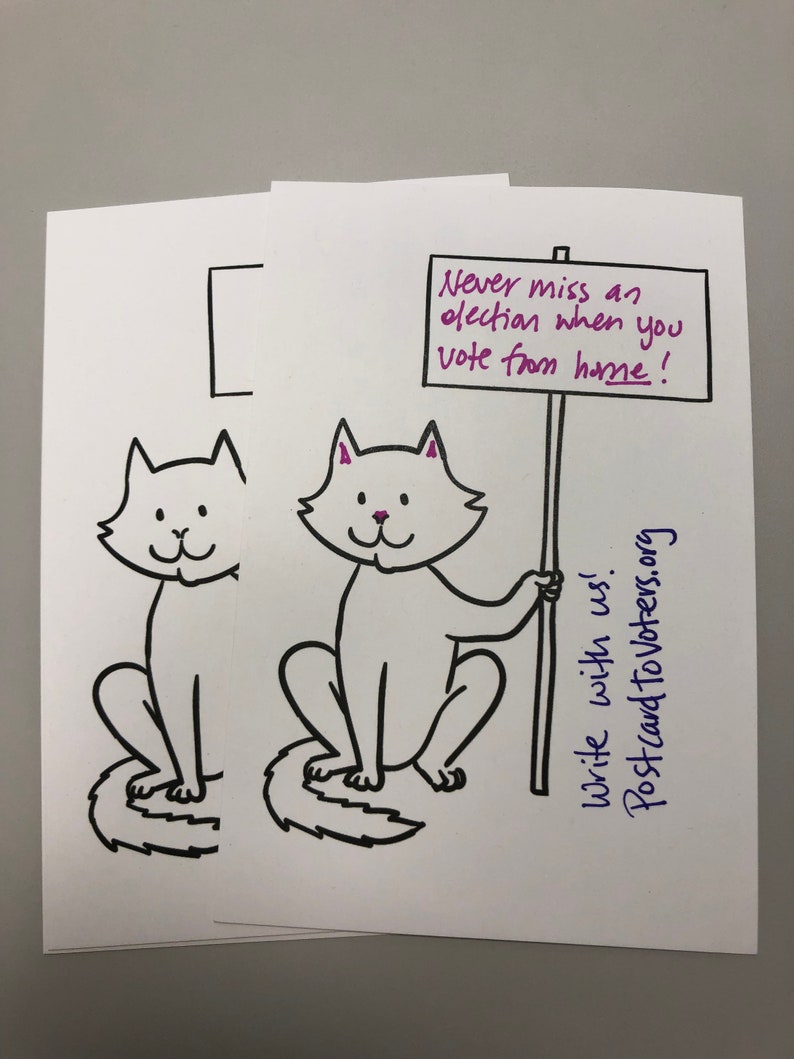 Never miss an
election when you
vote from home!
Write with us!
PostcardToVoters.org